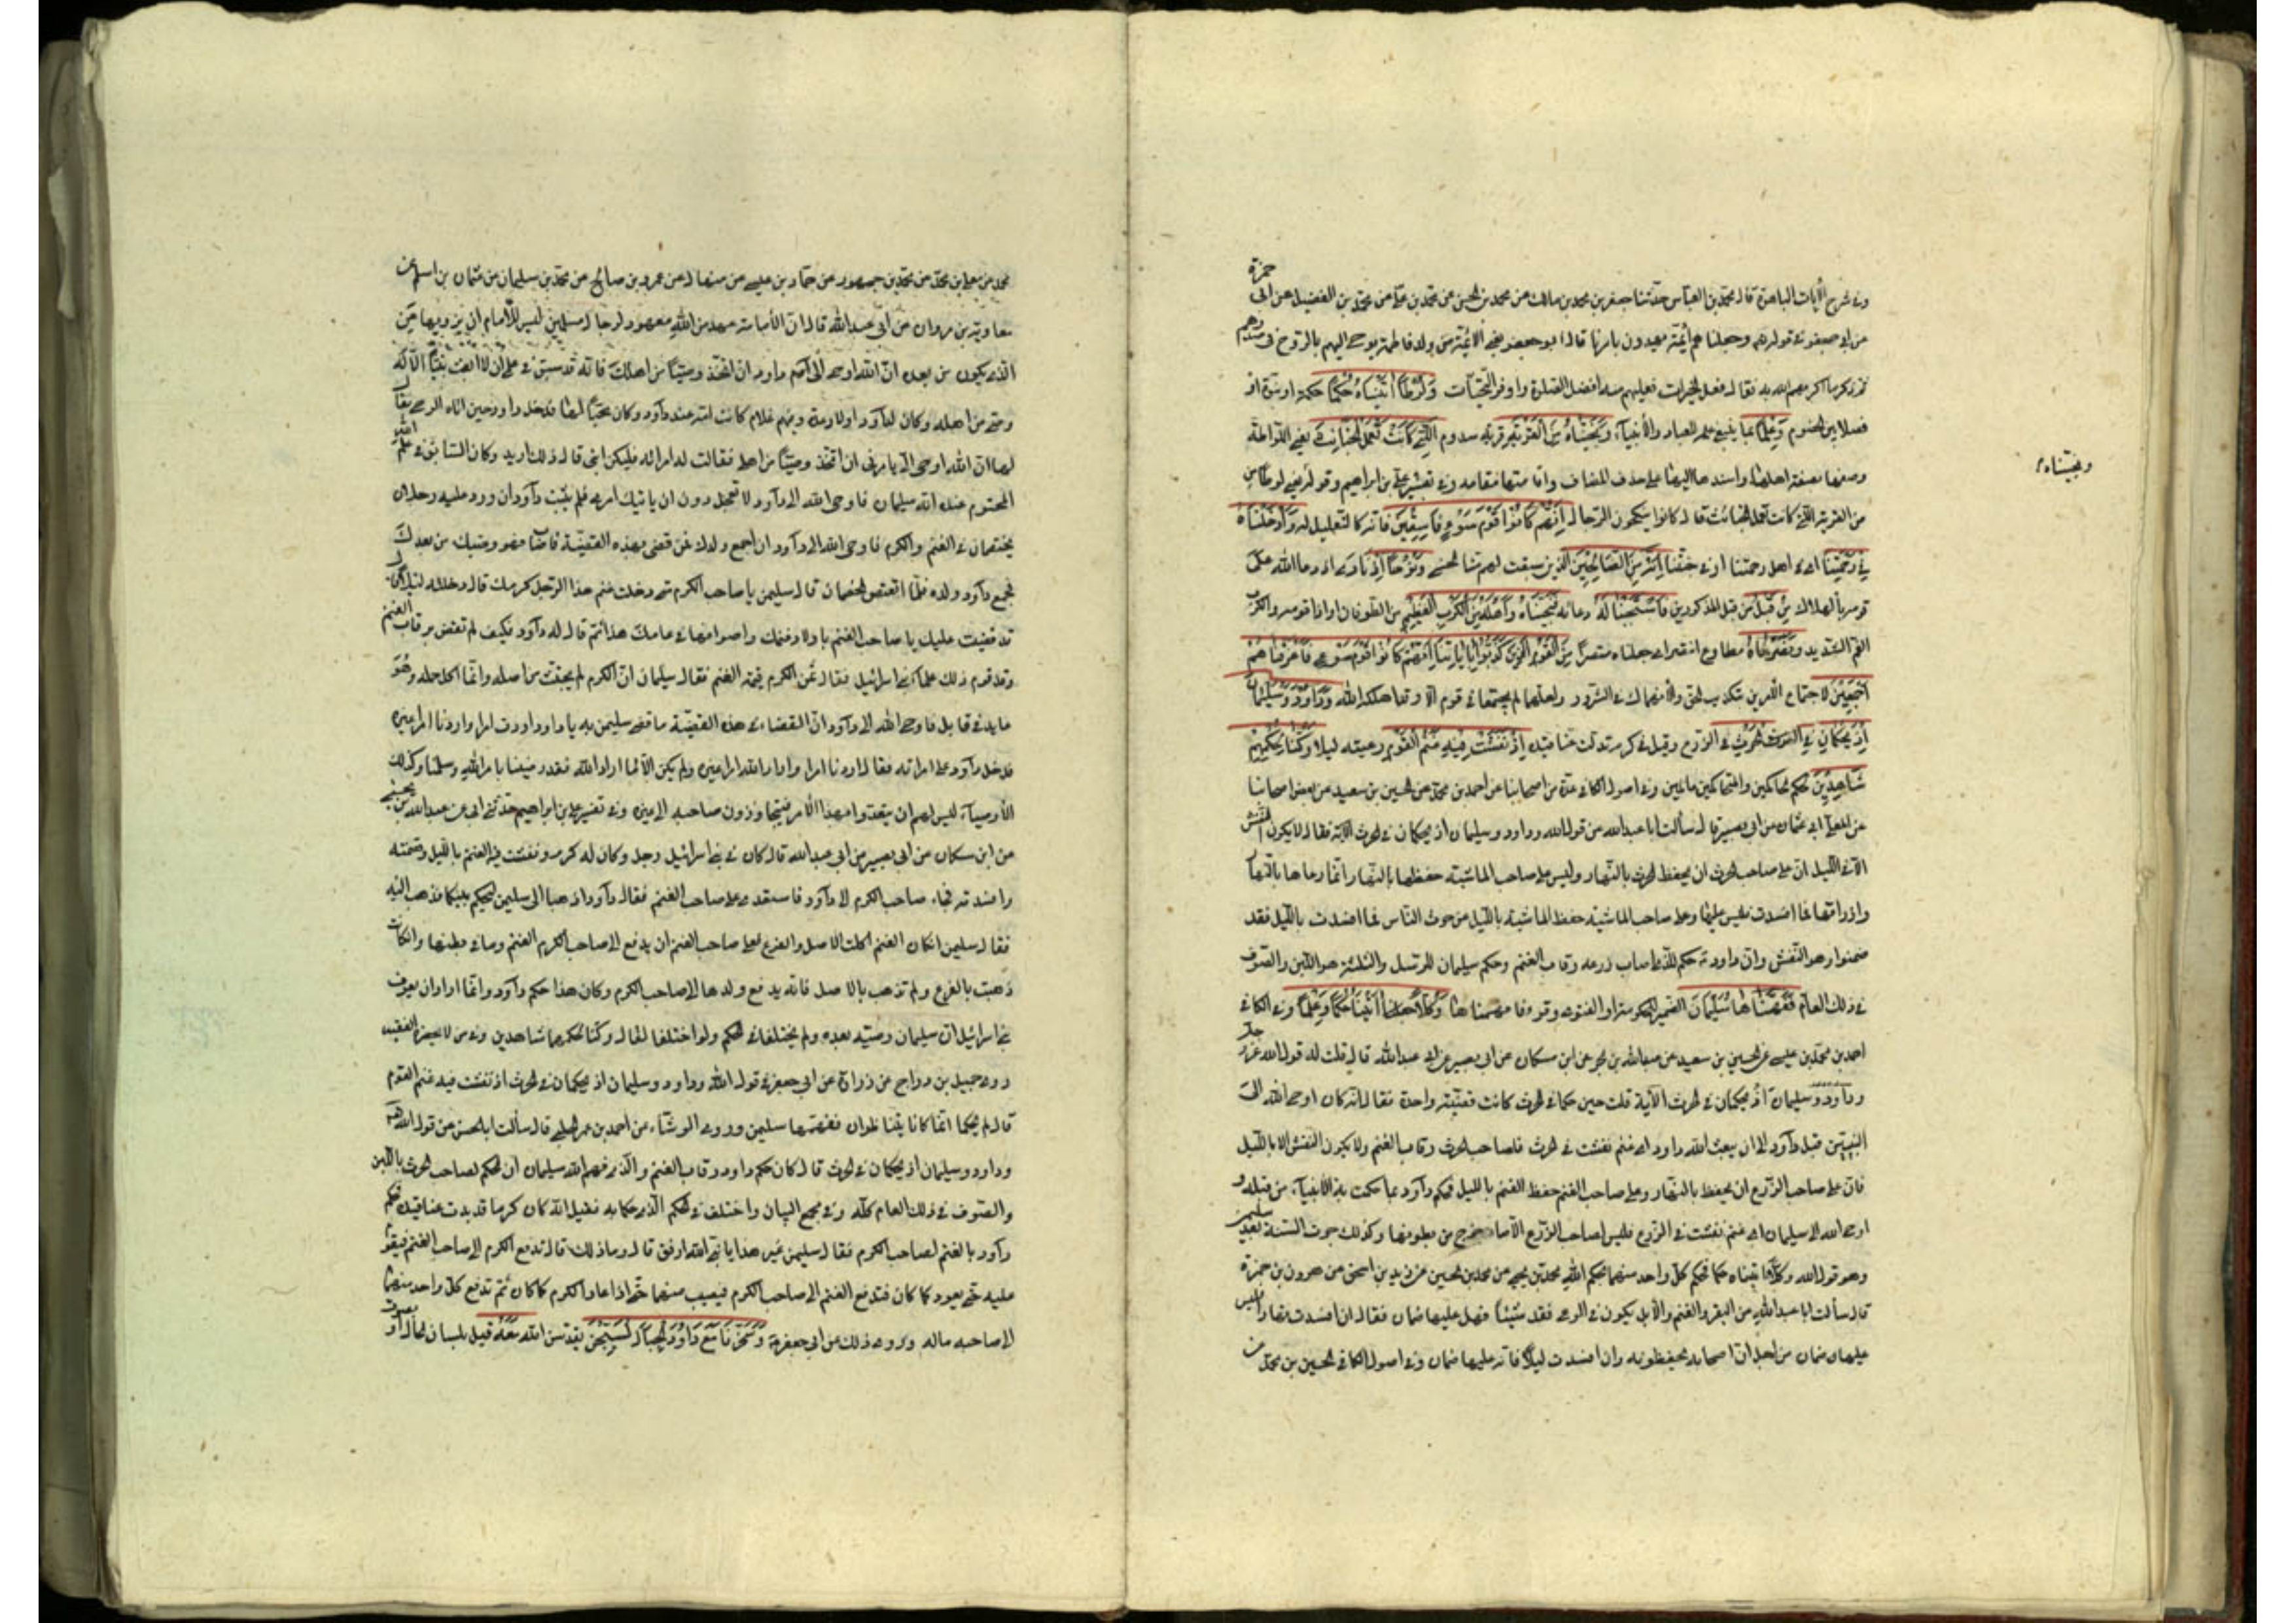 وفي شرح الآيات الباهرة قال محمد بن العباس حدثنا جعفر بن محمد بن مالك عن محمد بن الحسن عن محمد بن علي عن محمد بن الفضيل عن ابي حمزة
عن ابي جعفر في قوله وجعلناهم أئمة يهدون بامرنا قال ابو جعفر يعني الائمة من ولد فاطمة يوحى اليهم بالروح في صدورهم
ثم ذكر ما اكرمهم الله به فقال فعل الخيرات فعليهم منه افضل الصلوة واوفر التحيات وَلُوطًا آتَيْنَاهُ حُكْمًا حكمة او نبوة او
فصلا بين الخصوم وَعِلْمًا بما ينبغي علمه للعباد والأنبياء وَنَجَّيْنَاهُ مِنَ الْقَرْيَةِ قرية سدوم الَّتِي كَانَتْ تَعْمَلُ الْخَبَائِثَ يعني اللواطة
ونجيناه
وصفها بصفة اهلها واسندها اليها على حذف المضاف واقامتها مقامه وفي تفسير علي بن ابراهيم وقوله يعني لوطا من
من القرية التي كانت تعمل الخبائث قال كانوا ينكحون الرجال إِنَّهُمْ كَانُوا قَوْمَ سَوْءٍ فَاسِقِينَ فانه كالتعليل له وَأَدْخَلْنَاهُ
فِي رَحْمَتِنَا اي في اهل رحمتنا او في جنتنا إِنَّهُ مِنَ الصَّالِحِينَ الذين سبقت لهم منا الحسنى وَنُوحًا إِذْ نَادَى اذ دعا الله على
قومه بالهلاك مِنْ قَبْلُ من قبل المذكورين فَاسْتَجَبْنَا لَهُ دعائه فَنَجَّيْنَاهُ وَأَهْلَهُ مِنَ الْكَرْبِ الْعَظِيمِ من الطوفان او اذا قومه والكرب
الغم الشديد وَنَصَرْنَاهُ مطاوع انتصر اي جعلناه منتصرا مِنَ الْقَوْمِ الَّذِينَ كَذَّبُوا بِآيَاتِنَا إِنَّهُمْ كَانُوا قَوْمَ سَوْءٍ فَأَغْرَقْنَاهُمْ
أَجْمَعِينَ لاجتماع الامرين تكذيب الحق والانهماك في الشرور ولعلهما لم يجتمعا في قوم الا وقد اهلكهم الله وَدَاوُدَ وَسُلَيْمَانَ
إِذْ يَحْكُمَانِ فِي الْحَرْثِ في الزرع وقيل في كرم تدلت عناقيده إِذْ نَفَشَتْ فِيهِ غَنَمُ الْقَوْمِ رعيته ليلا وَكُنَّا لِحُكْمِهِمْ
شَاهِدِينَ لحكم الحاكمين والمتحاكمين عالمين وفي اصول الكافي عدة من اصحابنا عن احمد بن محمد عن الحسين بن سعيد عن بعض اصحابنا
عن المعلى ابي عثمان عن ابي بصير قال سألت ابا عبدالله عن قول الله وداود وسليمان اذ يحكمان في الحرث الآية فقال لا يكون النفش
الا في الليل ان على صاحب الحرث ان يحفظ الحرث بالنهار وليس على صاحب الماشية حفظها بالنهار انما رعاها بالنهار
وارزاقها فما افسدت فليس عليها وعلى صاحب الماشية حفظ الماشية بالليل عن حرث الناس فما افسدت بالليل فقد
ضمنوا وهو النفش وان داود حكم للذي اصاب زرعه رقاب الغنم وحكم سليمان الرسل والثلة هو اللبن والصوف
في ذلك العام فَفَهَّمْنَاهَا سُلَيْمَانَ الضمير للحكومة او الفتوى وقرء فافهمناها وَكُلًّا آتَيْنَا حُكْمًا وَعِلْمًا وفي الكافي
احمد بن محمد بن عيسى عن الحسين بن سعيد عن عبدالله بن بحر عن ابن مسكان عن ابي بصير عن ابي عبدالله قال قلت له قول الله عز وجل
وداود وسليمان اذ يحكمان في الحرث الآية قلت حين حكما في الحرث كانت قضية واحدة فقال انه كان اوحى الله الى
النبيين قبل داود الى ان بعث الله داود اي غنم نفشت في الحرث فلصاحب الحرث رقاب الغنم ولا يكون النفش الا بالليل
فان على صاحب الزرع ان يحفظ بالنهار وعلى صاحب الغنم حفظ الغنم بالليل فحكم داود بما حكمت به الأنبياء من قبله و
اوحى الله الى سليمان اي غنم نفشت في الزرع فليس لصاحب الزرع الا ما خرج من بطونها وكذلك جرت السنة بعد سليمن
وهو قول الله وكلا آتيناه حكما فحكم كل واحد منهما بحكم الله محمد بن يحيى عن محمد بن الحسين عن يزيد بن اسحق عن هرون بن حمزة
قال سألت ابا عبدالله عن البقر والغنم والابل يكون في الرعي فتفسد شيئا فهل عليها ضمان فقال ان افسدت نهارا فليس
عليها ضمان من اجل ان اصحابه يحفظونه وان افسدت ليلا فانه عليها ضمان وفي اصول الكافي الحسين بن محمد عن
محمد عن معلى بن محمد عن محمد بن جمهور عن حماد بن عيسى عن منهال عن عمرو بن صالح عن محمد بن سليمان عن عثمان بن اسلم عن
معاوية بن عمار عن ابي عبدالله قال ان الأمامة عهد من الله معهود لرجال مسمين ليس للأمام ان يزويها عن
الذي يكون من بعده ان الله اوحى الى داود ان اتخذ وصيا من اهلك فانه قد سبق في علمي ان لا ابعث نبيا الا وله
وصي من اهله وكان لداود اولاد عدة وفيهم غلام كانت امه عند داود وكان محبا لها فدخل داود حين اتاه الوحي فقال
لها ان الله اوحى الي يامرني ان اتخذ وصيا من اهلي فقالت له امراته فليكن ابني قال ذلك اريد وكان السابق في علم الله
المحتوم عنده انه سليمان فاوحى الله الى داود لا تعجل دون ان ياتيك امري فلم يلبث داود ان ورد عليه رجلان
يختصمان في الغنم والكرم فاوحى الله الى داود ان اجمع ولدك فمن قضى بهذه القضية فاصاب فهو وصيك من بعدك
فجمع داود ولده فلما اقتص الخصمان قال سليمن يا صاحب الكرم متى دخلت غنم هذا الرجل كرمك قال دخلته ليلا قال
قد قضيت عليك يا صاحب الغنم باولاد غنمك واصوافها في عامك هذا ثم قال له داود فكيف لم تقض برقاب الغنم
وقد قوم ذلك علماء بني اسرائيل فقال ثمن الكرم قيمة الغنم فقال سليمان ان الكرم لم يجتث من اصله وانما اكل حمله وهو
عايد في قابل فاوحى الله الى داود ان القضاء في هذه القضية ما قضى سليمن به يا داود اردت امرا واردنا امرا غيره
فدخل داود على امراته فقال اردنا امرا واراد الله امرا غيره ولم يكن الا ما اراد الله فقد رضينا بامر الله وسلمنا وكذلك
الأوصياء ليس لهم ان يتعدوا بهذا الأمر فيتجاوزون صاحبه الى غيره وفي تفسير علي بن ابراهيم حدثني ابي عن عبدالله بن يحيى
عن ابن مسكان عن ابي بصير عن ابي عبدالله قال كان في بني اسرائيل رجل وكان له كرم ونفشت فيه الغنم بالليل وقضمته
وافسدته فجاء صاحب الكرم الى داود فاستعدى على صاحب الغنم فقال داود اذهبا الى سليمن ليحكم بينكما فذهبا اليه
فقال سليمن ان كان الغنم اكلت الاصل والفرع فعلى صاحب الغنم ان يدفع الى صاحب الكرم الغنم وما في بطنها وان كانت
ذهبت بالفرع ولم تذهب بالاصل فانه يدفع ولدها الى صاحب الكرم وكان هذا حكم داود وانما اراد ان يعرف
بني اسرائيل ان سليمان وصيه بعده ولم يختلفا في الحكم ولو اختلفا لقال وكنا لحكمهما شاهدين وفي من لا يحضره الفقيه
روى جميل بن دراج عن زرارة عن ابي جعفر في قول الله وداود وسليمان اذ يحكمان في الحرث اذ نفشت فيه غنم القوم
قال لم يحكما انما كانا يتناظران ففهمها سليمن وروى الوشاء عن احمد بن عمر الحلبي قال سألت ابا الحسن عن قول الله
وداود وسليمان اذ يحكمان في الحرث قال كان حكم داود رقاب الغنم والذي فهم الله سليمان ان الحكم لصاحب الحرث باللبن
والصوف في ذلك العام كله وفي مجمع البيان واختلف في الحكم الذي حكما به فقيل انه كان كرما قد بدت عناقيده فحكم
داود بالغنم لصاحب الكرم فقال سليمن غير هذا يا نبي الله ارفق قال وما ذلك قال تدفع الكرم الى صاحب الغنم فيقوم
عليه حتى يعود كما كان فتدفع الغنم الى صاحب الكرم فيصيب منها حتى اذا عاد الكرم كما كان ثم تدفع كل واحد منهما
الى صاحبه ماله وروى ذلك عن ابي جعفر وَسَخَّرْنَا مَعَ دَاوُدَ الْجِبَالَ يُسَبِّحْنَ يقدسن الله معه قيل بلسان الحال او بصوت